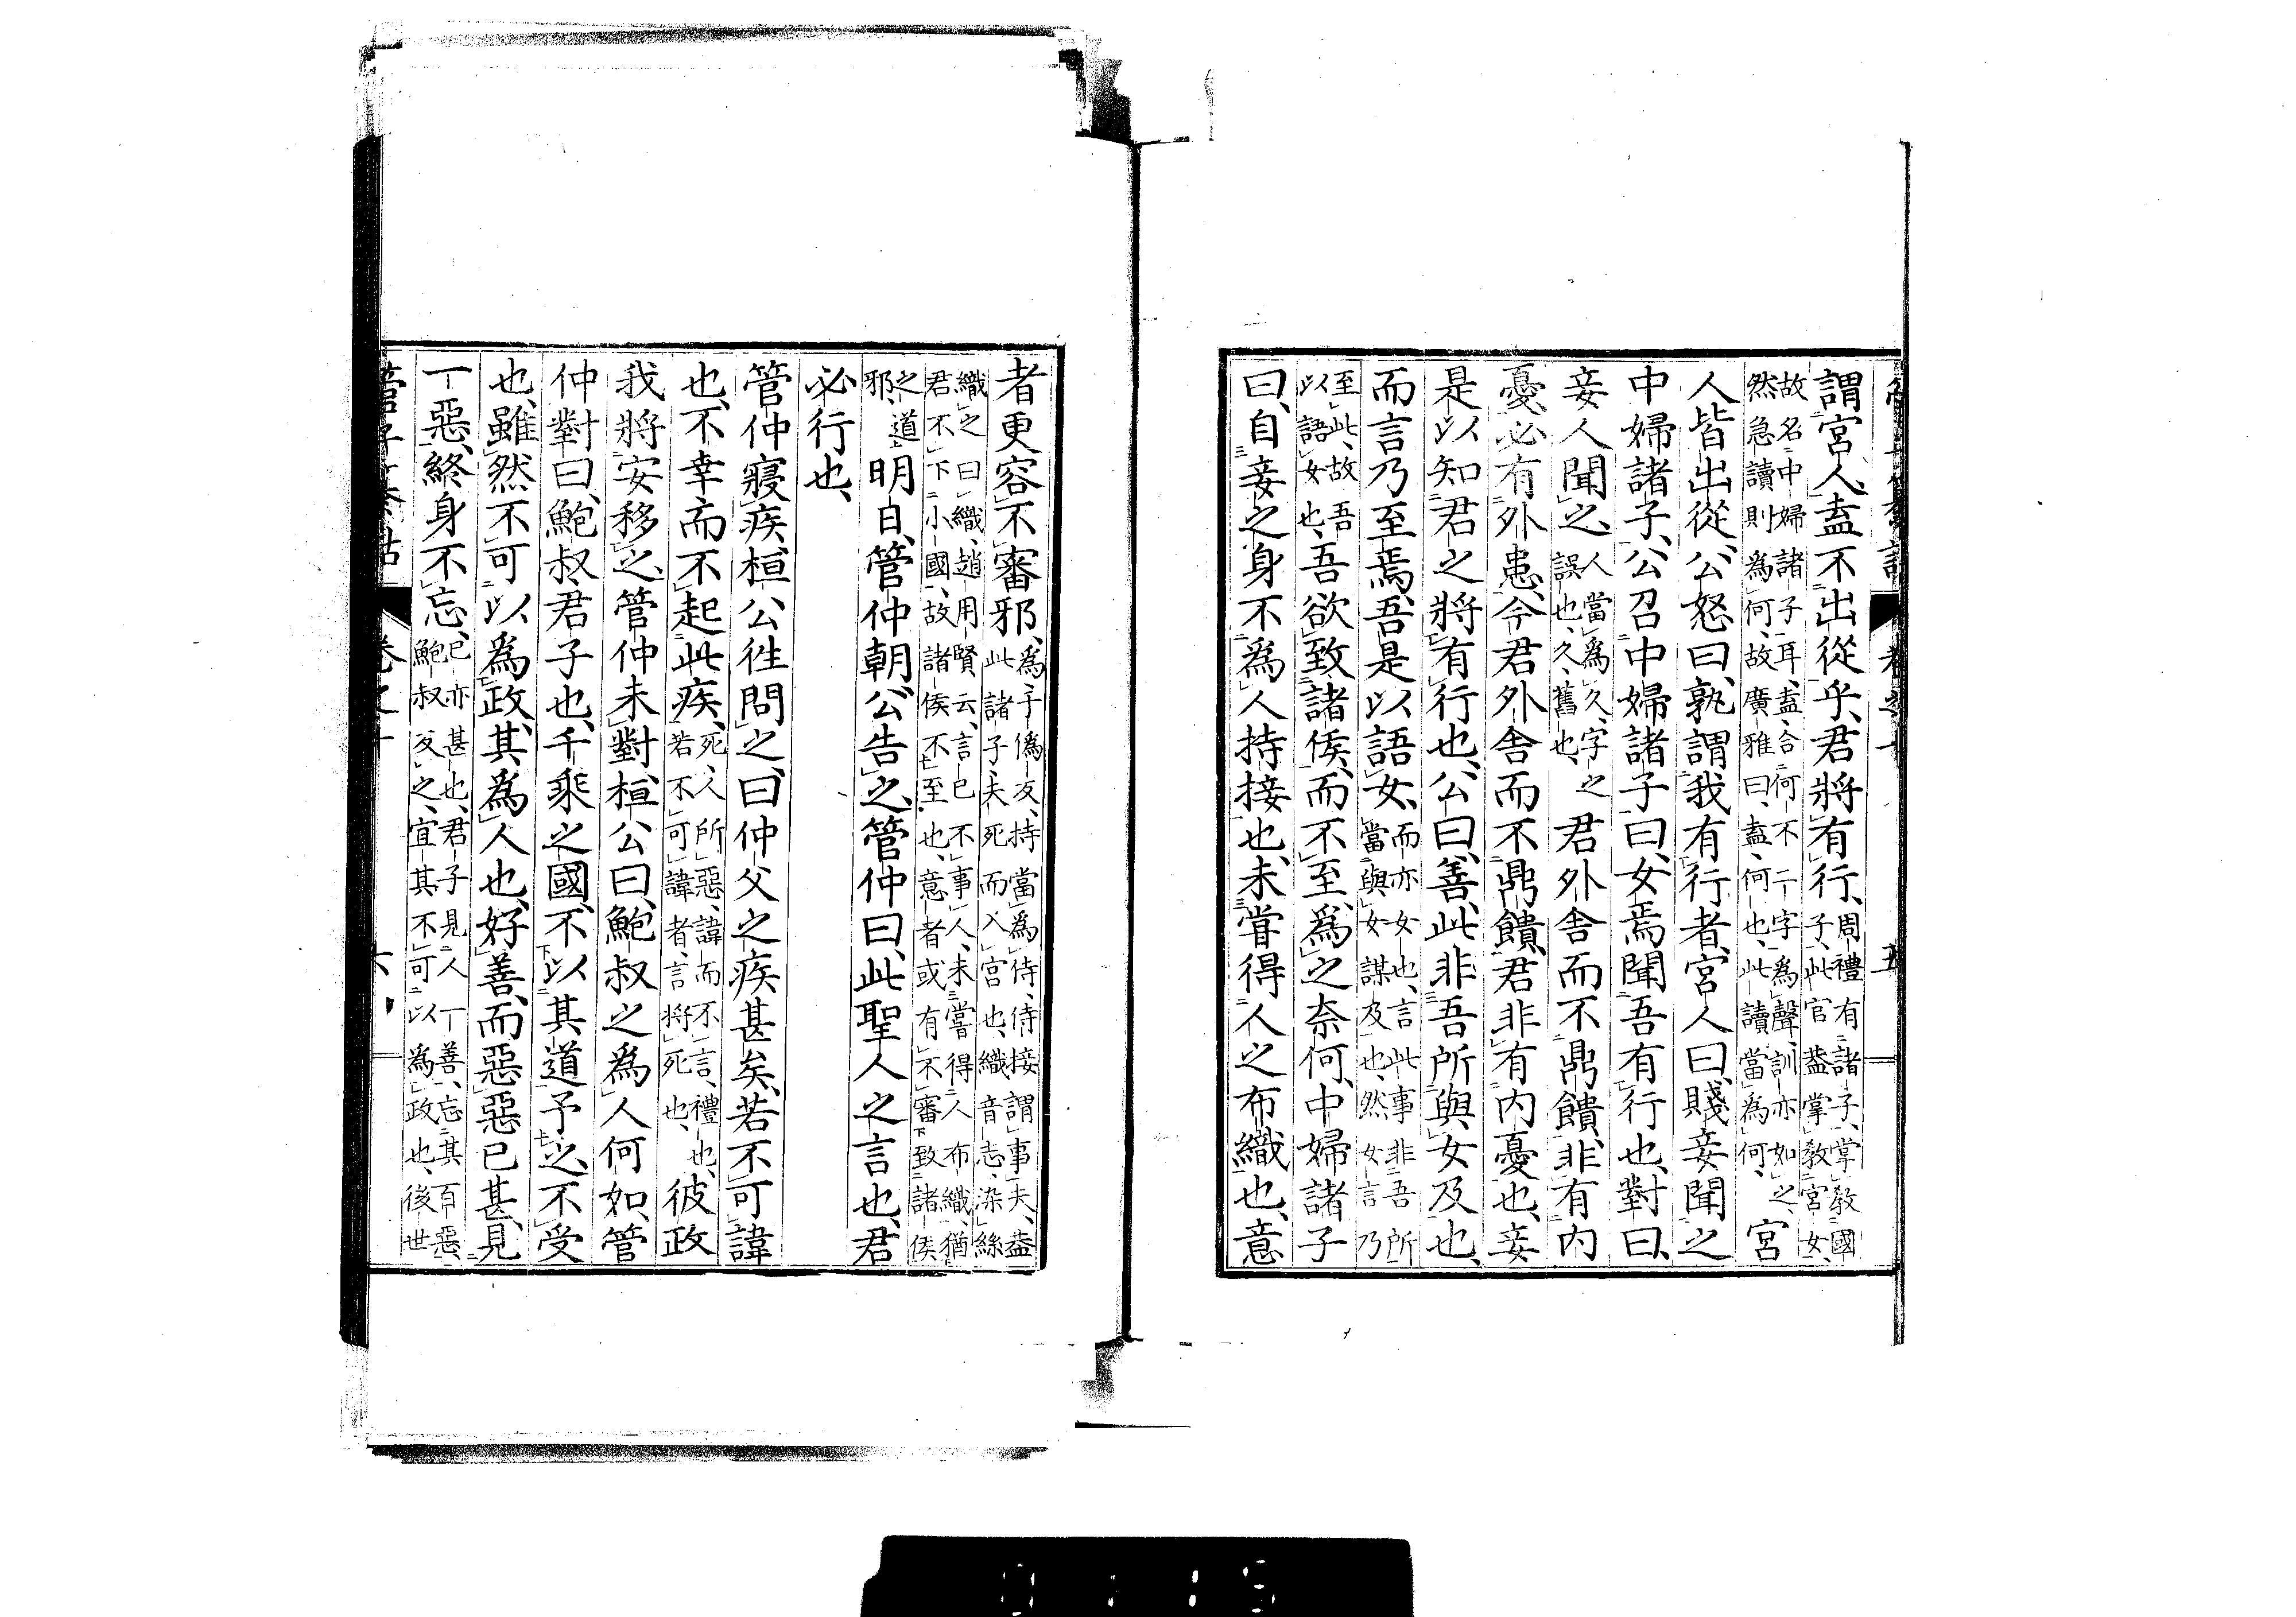 謂宮人、盍不出從乎、君將有行、周禮有諸子、掌敎國子、此官葢掌敎宮女、
故名中婦諸子耳、盍、合何不二字爲聲、訓亦如之、然急讀則爲何、故廣雅曰、盍、何也、此讀當爲何、宮
人皆出從、公怒曰、孰謂我有行者、宮人曰、賤妾聞之
中婦諸子、公召中婦諸子曰、女焉聞吾有行也、對曰、
妾人聞之、人當爲久、字之誤也、久、舊也、君外舍而不鼎饋、非有內
憂、必有外患、今君外舍而不鼎饋、君非有內憂也、妾
是以知君之將有行也、公曰、善、此非吾所與女及也、
而言乃至焉、吾是以語女、而亦女也、言此事非吾所當與女謀及也、然女言乃
至此、故吾以語女也、吾欲致諸侯、而不至、爲之奈何、中婦諸子
曰、自妾之身不爲人持接也、未甞得人之布織也、意
者更容不審邪、爲、予僞反、持當爲侍、侍接、謂事夫、葢此諸子夫死而入宮也、織音志、染絲
織之曰織、趙用賢云、言已不事人、未嘗得人布織、猶君不下小國、故諸侯不至也、意者或有不審致諸侯
之道邪、明日、管仲朝、公告之、管仲曰、此聖人之言也、君
必行也、
管仲寢疾、桓公徃問之曰、仲父之疾甚矣、若不可諱
也、不幸而不起此疾、死、人所惡、諱而不言、禮也、若不可諱者、言將死也、彼政
我將安移之、管仲未對、桓公曰、鮑叔之爲人何如、管
仲對曰、鮑叔、君子也、千乘之國、不以其道予之、不受
也、雖然不可以爲政、其爲人也、好善、而惡惡已甚、見
一惡、終身不忘、已亦甚也、君子見人一善、忘其百惡、鮑叔反之、宜其不可以爲政也、後世
管子纂詁 卷之十